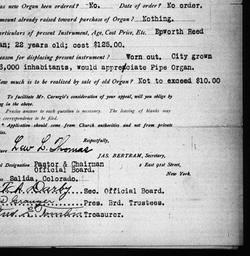 new Organ been ordered? No. Date of Order? No order.
amount already raised toward purchase of Organ? Nothing.
particulars of present Instrument, Age, Cost Price, Etc. Epworth Reed
an; 22 years old; cost $125.00
reason for displacing present instrument? Worn out. City grown
6,000 inhabitants, would appreciate Pipe Organ.
How much is to be realized by sale of old Organ? Not to exceed $10.00
To facilitate Mr. Carnegie's consideration of your appeal, will you fill
in the above.
Precise answer to each question is necessary. The leaving of blanks may
correspondence to be filed.
Application should come from Church authorities and not from private
Respectfully,
Lew L. Thomas
JAS. BERTRAM, Secretary,
2 East 91st Street,
New York.
Designation Pastor & Chairman
Official Board.
Salida, Colorado.
Darby Sec. Official Board.
Pres. Brd. Trustees.
Treasurer.